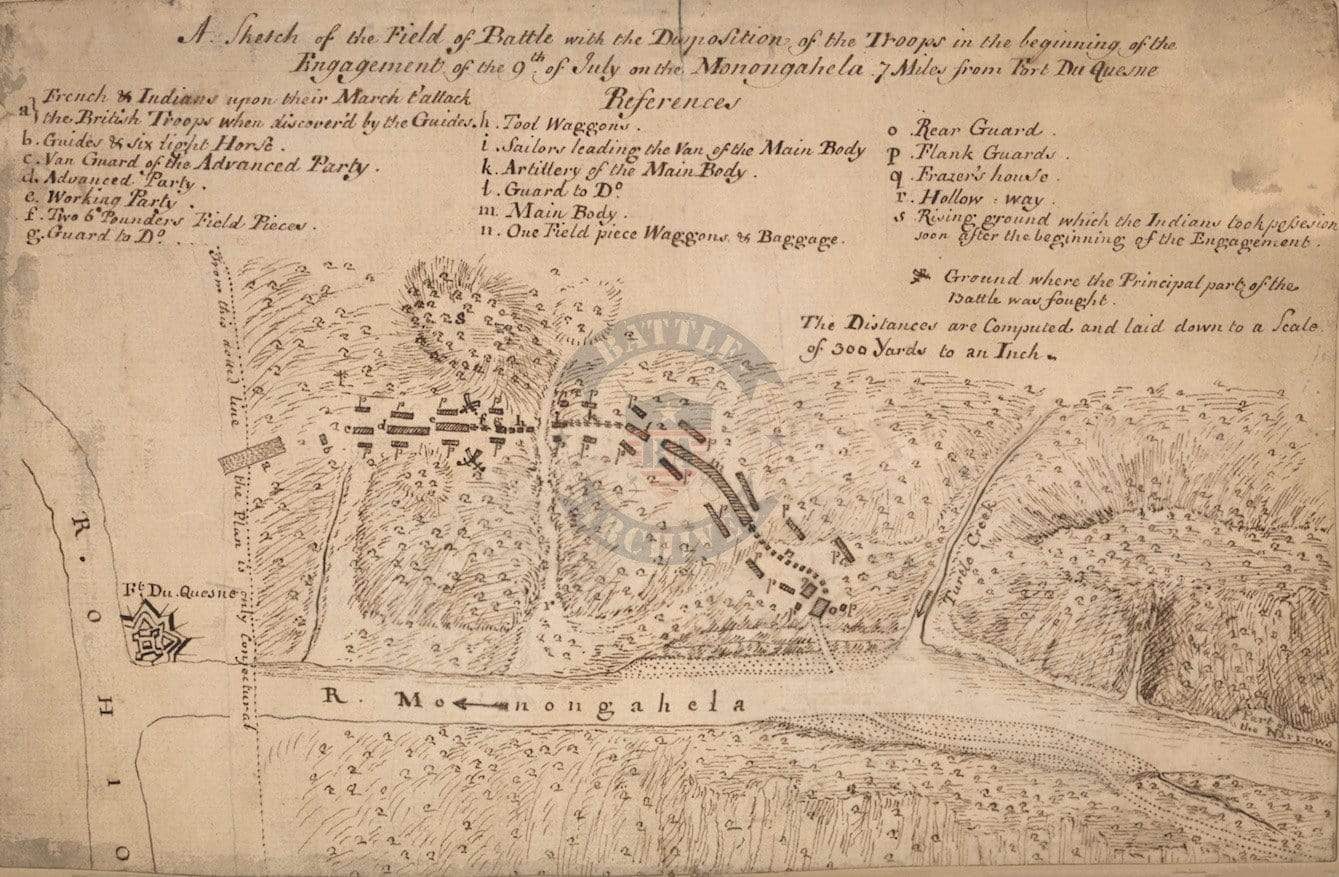 A Sketch of the Field of Battle with the Disposition of the Troops in the beginning of the
Engagement of the 9th of July on the Monongahela 7 Miles from Fort Du Quesne
References
a} French & Indians upon their March t'attack
the British Troops when discover'd by the Guides.
b. Guides & six light Horse.
c. Van Guard of the Advanced Party.
d. Advanced Party.
e. Working Party.
f. Two 6 Pounders Field Pieces.
g. Guard to Do.
h. Tool Waggons.
i. Sailors leading the Van of the Main Body
k. Artillery of the Main Body.
l. Guard to Do
m. Main Body.
n. One Field piece Waggons & Baggage.
o. Rear Guard.
p. Flank Guards.
q. Frazer's house.
r. Hollow way.
s Rising ground which the Indians took possesion
soon after the beginning of the Engagement.
Ground where the Principal part of the
Battle was fought.
The Distances are Computed and laid down to a Scale
of 300 Yards to an Inch.
From this doted line the Plan is only Conjectural
BATTLE
ARCHIVES
Turtle Creek
Ft. Du Quesne
R. OHIO
R. Monongahela
Part of
the Narrows